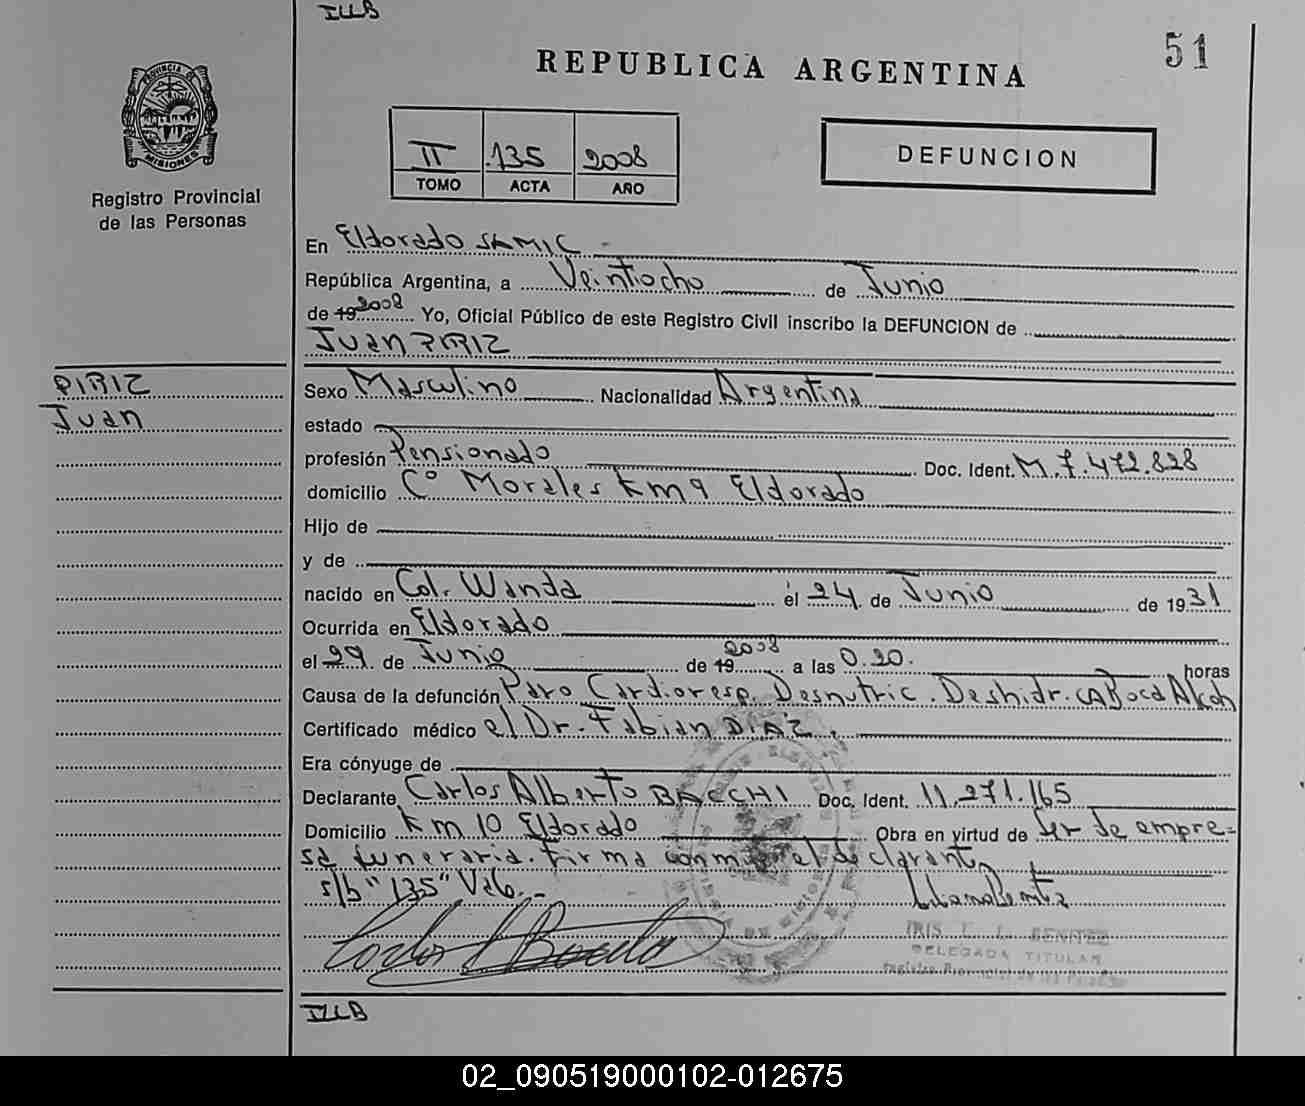 ILLB
51
REPUBLICA ARGENTINA
PROVINCIA DE MISIONES
Registro Provincial
de las Personas
II .135 2008
TOMO ACTA AÑO
DEFUNCION
En Eldorado SAMIC
República Argentina, a Veintiocho de Junio
de 19 2008 Yo, Oficial Público de este Registro Civil inscribo la DEFUNCION de
Juan PIRIZ
PIRIZ
Juan
Sexo Masculino Nacionalidad Argentina
estado
profesión Pensionado Doc. Ident. M.7.472.828
domicilio Cº Morales Km 9 Eldorado
Hijo de
y de
nacido en Col. Wanda el 24 de Junio de 1931
Ocurrida en Eldorado
el 29 de Junio de 19 2008 a las 0.20. horas
Causa de la defunción Paro Cardioresp. Desnutric. Deshidr. CA Boca Alcoh
Certificado médico el Dr. Fabian DIAZ.
Era cónyuge de
Declarante Carlos Alberto BACCHI Doc. Ident. 11.271.165
Domicilio Km 10 Eldorado Obra en virtud de Ser de empre=
sa funeraria. Firma conmigo el declarante
s/b "135" Vale.-
IRIS L. L. BENITEZ
DELEGADA TITULAR
Registro Provincial de las Personas
ILLB
02_090519000102-012675